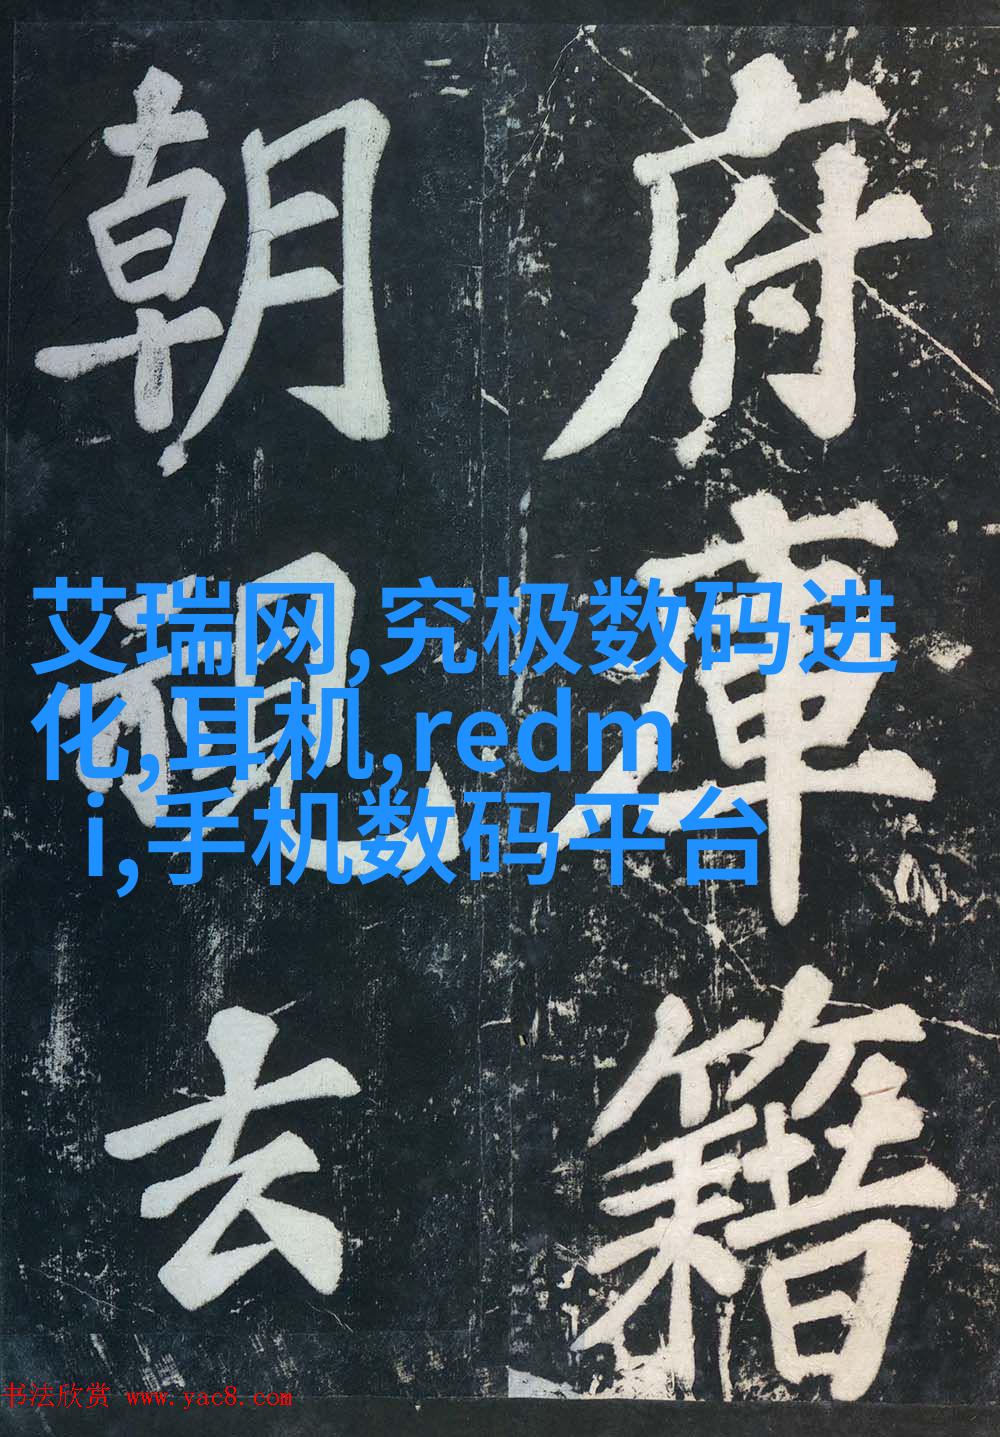 府庫籍
朝視去
艾瑞网,究极数码进
化,耳机,redm
i,手机数码平台
书法欣赏 www.yac8.com